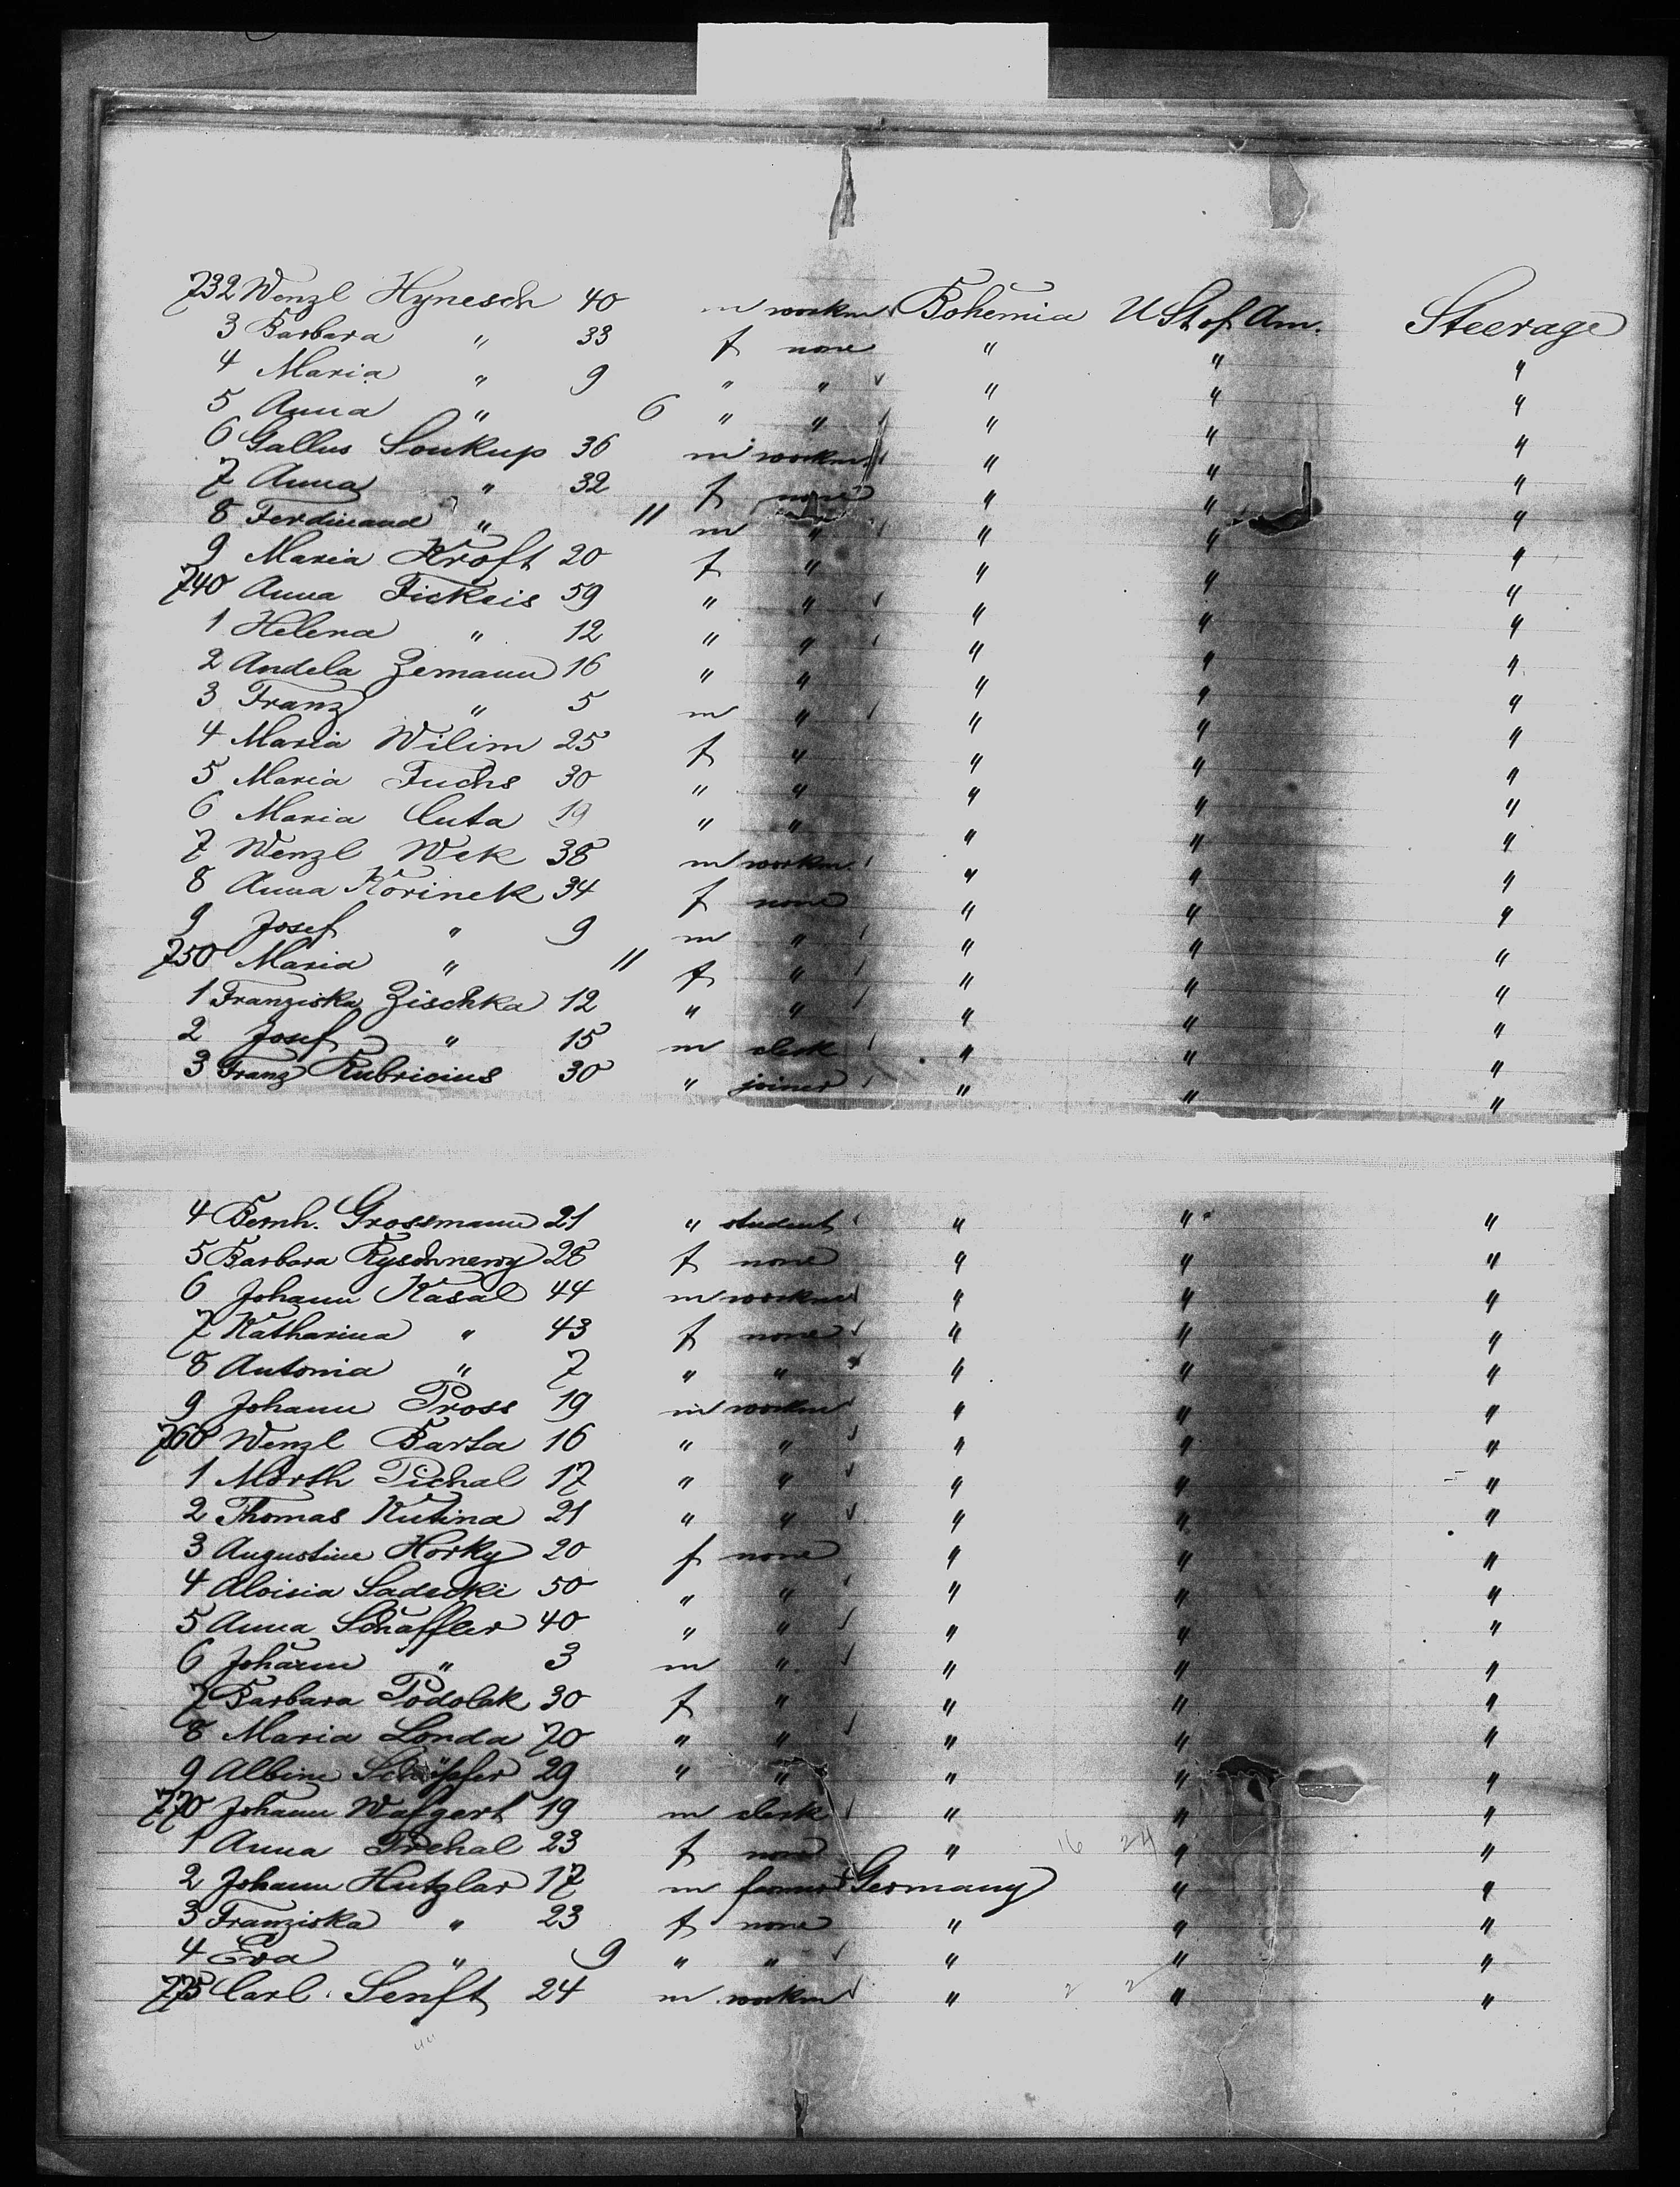 732 Wenzl Hynesch 40 m workm Bohemia U St of Am. Steerage
3 Barbara " 33 f none " " "
4 Maria " 9 " " " " "
5 Anna " 6 " " " " "
6 Gallus Soukup 36 m workm. " " "
7 Anna " 32 f none " " "
8 Ferdinand " 11 m " " " "
9 Maria Kroft 20 f " " " "
740 Anna Fickeis 59 " " " " "
1 Helena " 12 " " " " "
2 Andela Zemann 16 " " " " "
3 Franz " 5 m " " " "
4 Maria Wilim 25 f " " " "
5 Maria Fuchs 30 " " " " "
6 Maria Cuta 19 " " " " "
7 Wenzl Wek 38 m workm. " " "
8 Anna Korinek 34 f none " " "
9 Josef " 9 m " " " "
750 Maria " 11 f " " " "
1 Franziska Zischka 12 " " " " "
2 Josef " 15 m clerk " " "
3 Franz Rubricius 30 " joiner " " "
4 Bernh. Grossmann 21 " student " " "
5 Barbara 28 f none " " "
6 Johann Kasal 44 m workm " " "
7 Katharina " 43 f none " " "
8 Antonia " 7 " " " " "
9 Johann Pross 19 m workm " " "
760 Wenzl Barta 16 " " " " "
1 Pichal 17 " " " " "
2 Thomas Kutina 21 " " " " "
3 Augustine Horky 20 f none " " "
4 Aloisia Sadecki 50 " " " " "
5 Anna Schaffler 40 " " " " "
6 Johann " 3 m " " " "
7 Barbara Podolak 30 f " " " "
8 Maria Londa 70 " " " " "
9 Albine 29 " " " " "
770 Johann Wafgert 19 m clerk " " "
1 Anna 23 f none " 16 24 " "
2 Johann Hutzlar 17 m farmer Germany " "
3 Franziska " 23 f none " " "
4 Eva " 9 " " " " "
775 Carl Senft 24 m workm " 2 2 " "